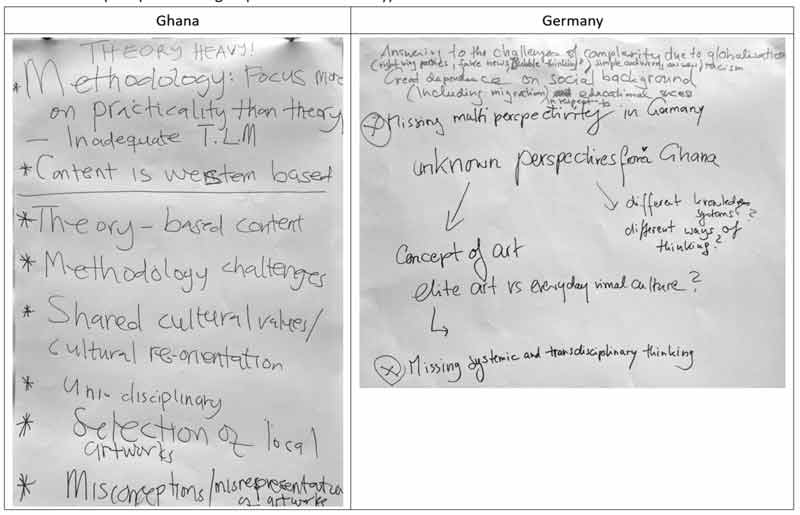 Ghana
THEORY HEAVY!
* Methodology: Focus more
on practicality than theory
— Inadequate T.L.M
* Content is western based
* Theory-based content
* Methodology challenges
* Shared cultural values/
cultural re-orientation
* Uni-disciplinary
* Selection of local
artworks
* Misconceptions/misrepresentation
of artworks
Germany
Answering to the challenges of complexity due to globalisation
(right wing parties, fake news, bubble thinking, simple answers,) racism
Great dependence on social background
(including migration) educational success
in respect to
Missing multi perspectivity in Germany
unknown perspectives from Ghana
different knowledge
systems?
different ways of
thinking?
Concept of art
elite art vs everyday visual culture?
Missing systemic and transdisciplinary thinking